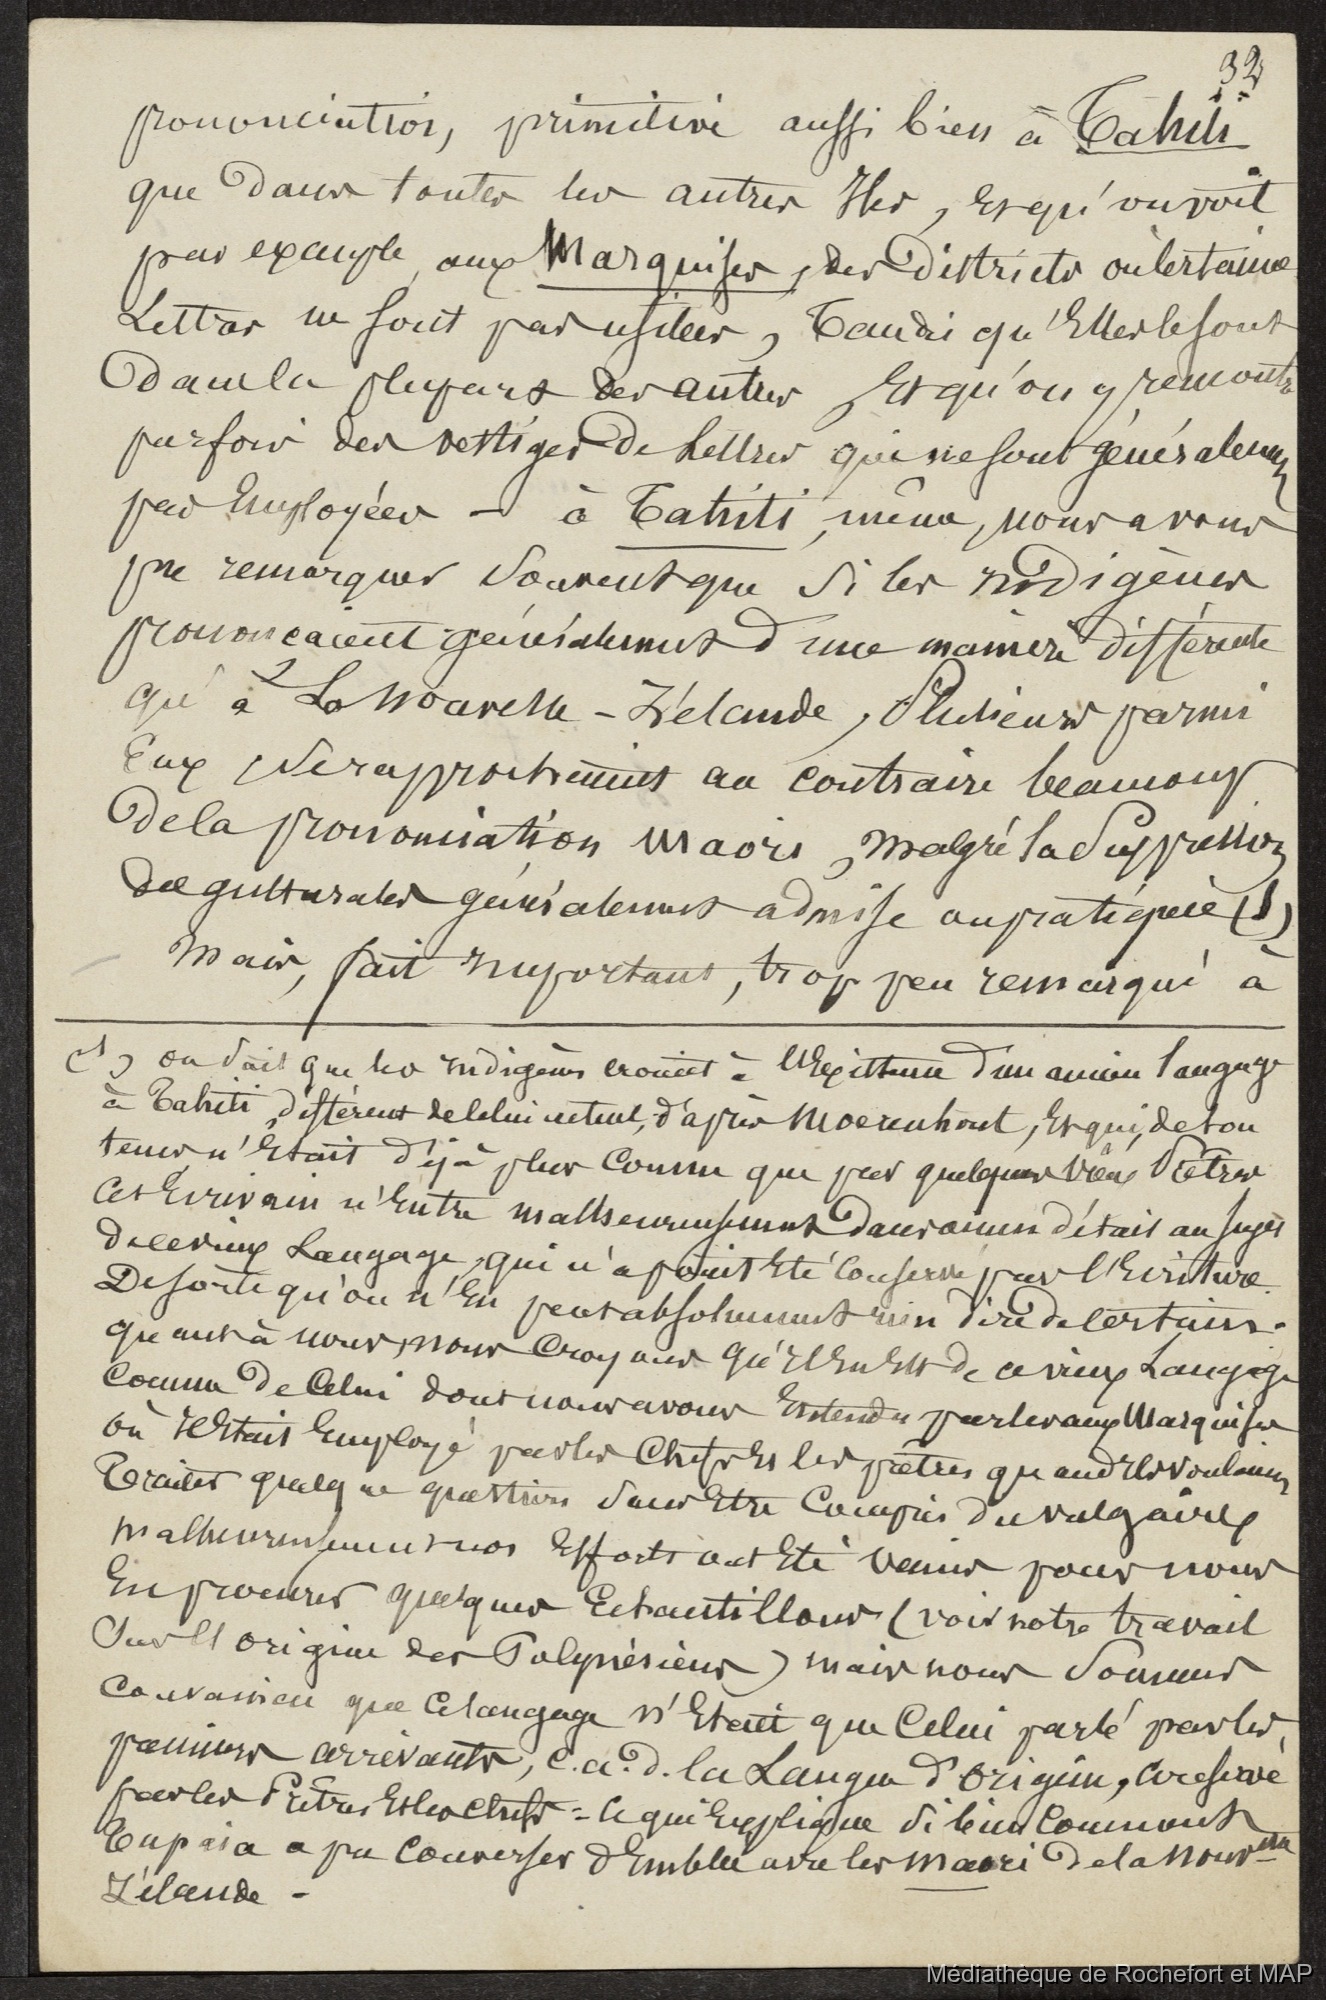 32
prononciation, primitive aussi bien à Tahiti
que dans toutes les autres Iles, et qu'on voit
par exemple, aux Marquises, des districts où certaines
Lettres ne sont pas usitées, Tandis qu'Elles le sont
Dans la plupart des autres Et qu'on y remontre
parfois des vestiges De Lettres qui ne sont généralement
pas Employées - à Tahiti, même, nous avons
pu remarquer Souvent que Si les Indigènes
prononçaient généralement d'une manière différente
qu'à La Nouvelle-Zélande, Plusieurs parmi
Eux, Se rapprochaient au contraire beaucoup
De la prononciation Maori, Malgré la Suppression
des gutturales généralement admise ou pratiquée (1)
Mais, fait Important, trop peu remarqué à
(1) on Sait que les Indigènes croient à l'Existence d'un ancien langage
à Tahiti, différent de celui actuel, d'après Moerenhout, Et qui, de son
tems, n'Etait déjà plus Connu que par quelques vieux Prêtres
Cet Ecrivain n'Entre malheureusement Dans aucun détail au Sujet
De ce vieux Langage, qui n'a point Eté Conservé par l'Ecriture.
De sorte qu'on n'En peut absolument rien dire de certain.
quant à nous, nous Croyons qu'Il En Est de ce vieux Langage
Comme De Celui dont nous avons Entendu parler aux Marquises
où Il Etait Employé par les Chefs Et les prêtres quand Ils voulaient
Traiter quelque question Sans Etre Compris du vulgaire
Malheureusement nos Efforts ont Eté vains pour nous
En procurer quelques Echantillons (voir notre travail
Sur l'origine des Polynésiens) mais nous Sommes
Convaincu que Ce langage n'Etait que Celui parlé par les
premiers arrivants, c.à.d. la Langue d'Origine, Conservée
par les Prêtres Et les Chefs = Ce qui Explique Si bien Comment
Tupaia a pu Converser d'Emblée avec les Maori De la Nouvelle
Zélande -
Médiathèque de Rochefort et MAP